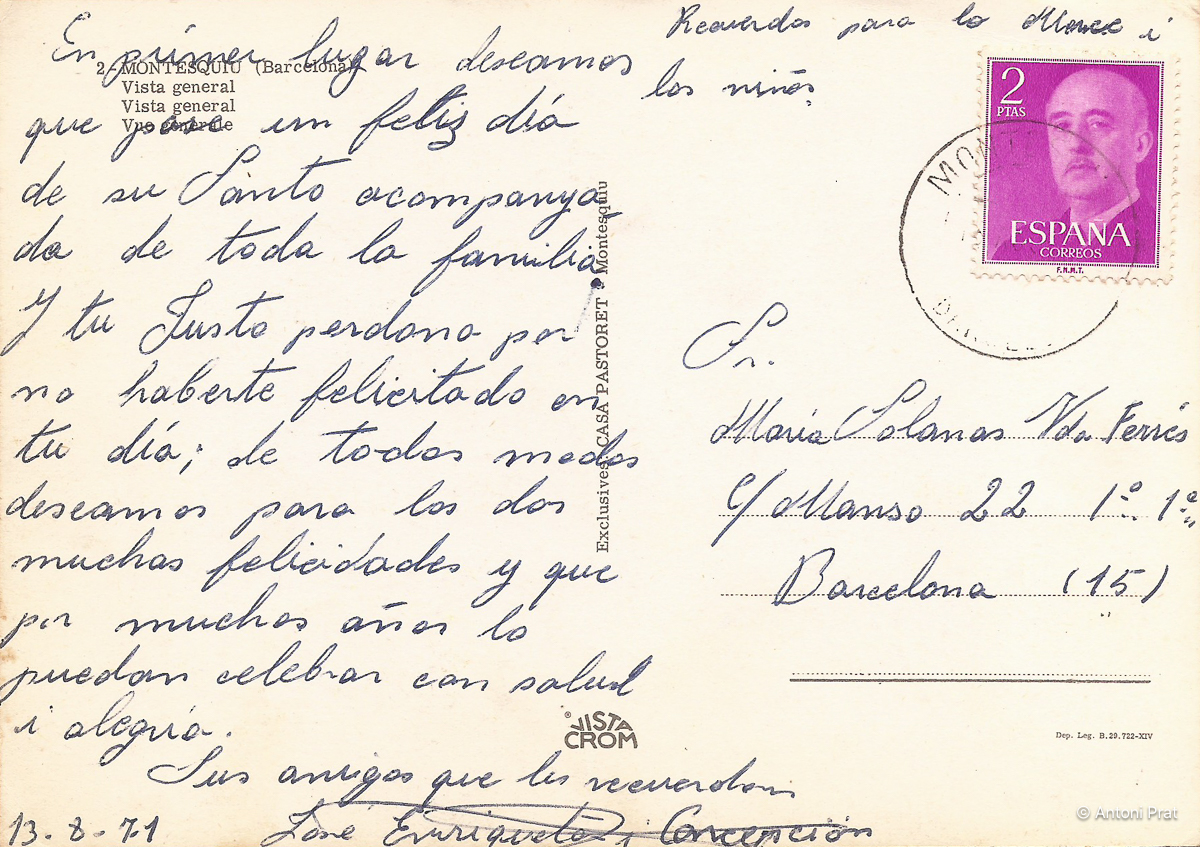 Recuerdos para la Merce i
los niños
En primer lugar deseamos
que pase un feliz día
de su Santo acompanya
da de toda la familia
Y tu Justo perdona por
no haberte felicitado en
tu día; de todos modos
deseamos para los dos
muchas felicidades y que
por muchos años lo
puedan celebrar con salud
i alegría.
Sus amigos que les recuerdan
José Enriqueta i Concepción
13-8-71
2 - MONTESQUIU (Barcelona)
Vista general
Vista general
Vue générale
Exclusives: CASA PASTORET - Montesquiu
VISTA
CROM
2
PTAS
ESPAÑA
CORREOS
F.N.M.T.
Sr.
Maria Solanas Vda Ferrés
C/ Manso 22 1º 1ª
Barcelona (15)
Dep. Leg. B.29.722-XIV
© Antoni Prat